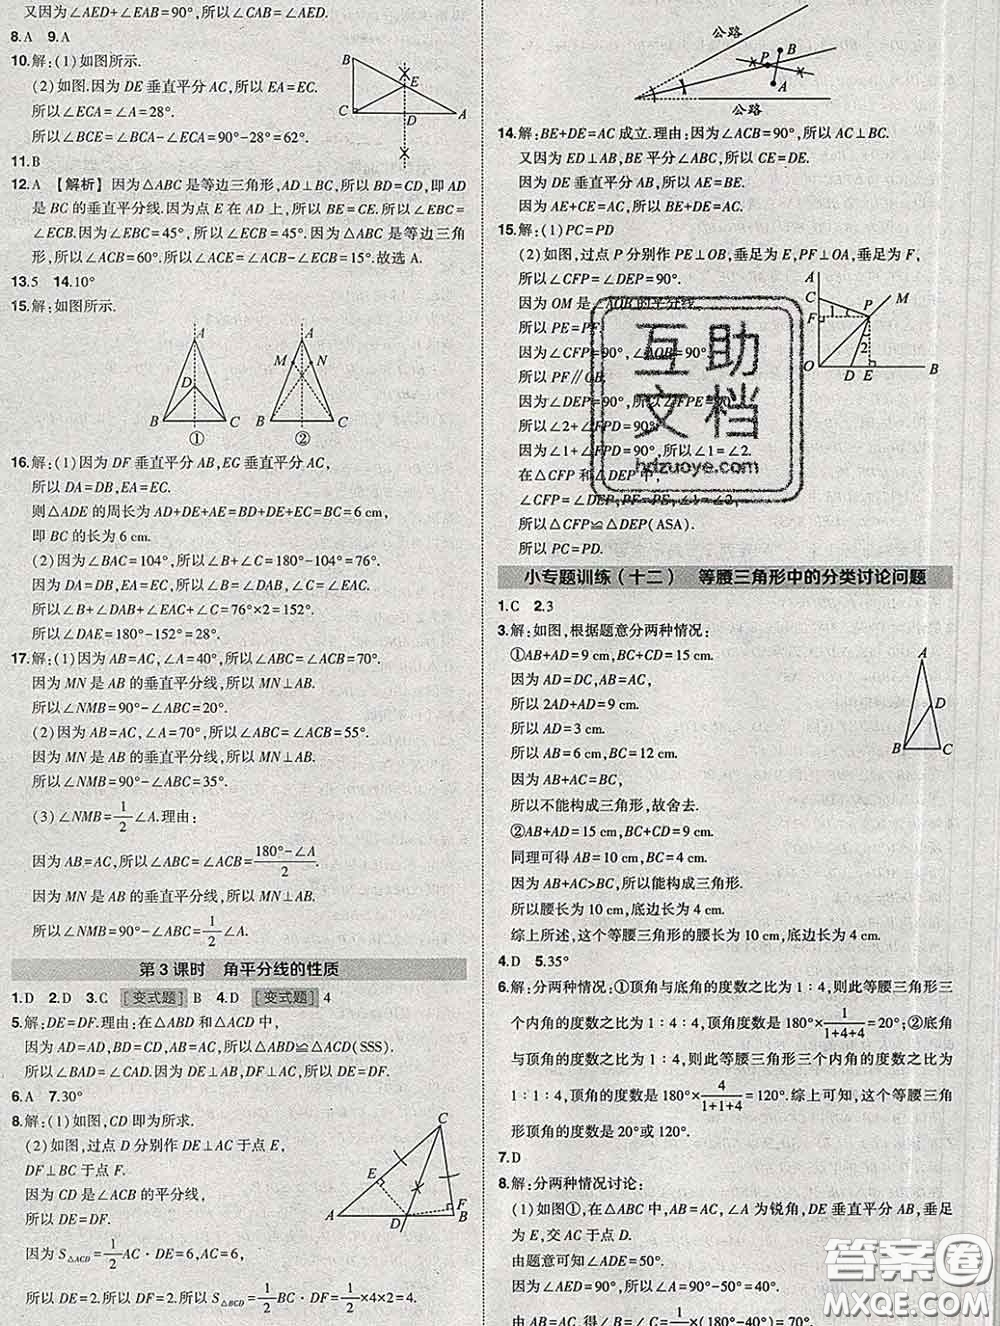 又因为∠AED+∠EAB=90°,所以∠CAB=∠AED.
8.A 9.A
10.解:(1)如图所示.
(2)如图.因为 DE 垂直平分 AC,所以 EA=EC.
所以∠ECA=∠A=28°.
所以∠BCE=∠BCA-∠ECA=90°-28°=62°.
B
E
C
D
A
11.B
12.A 【解析】 因为△ABC 是等边三角形,AD⊥BC,所以 BD=CD,即 AD
是 BC 的垂直平分线.因为点 E 在 AD 上,所以 BE=CE.所以∠EBC=
∠ECB.因为∠EBC=45°,所以∠ECB=45°.因为△ABC 是等边三角
形,所以∠ACB=60°.所以∠ACE=15°.故选 A.
13.5 14.10°
15.解:如图所示.
A
D
B
C
①
A
M
N
B
C
②
16.解:(1)因为 DF 垂直平分 AB,EG 垂直平分 AC,
所以 DA=DB,EA=EC.
则△ADE 的周长为 AD+DE+AE=BD+DE+EC=BC=6 cm,
即 BC 的长为 6 cm.
(2)因为∠BAC=104°,所以∠B+∠C=180°-104°=76°.
因为 DA=DB,EA=EC,
所以∠DAB=∠B,∠EAC=∠C.
所以∠B+∠BAD+∠C+∠EAC=76°×2=152°.
所以∠DAE=180°-152°=28°.
17.解:(1)因为 AB=AC,∠A=40°,所以∠ABC=70°.
因为 MN 是 AB 的垂直平分线,所以 MN⊥AB.
所以∠NMB=90°-∠ABC=20°.
(2)因为 AB=AC,∠A=70°,所以∠ABC=55°.
因为 MN 是 AB 的垂直平分线,所以 MN⊥AB.
所以∠NMB=90°-∠ABC=35°.
(3)∠NMB=1/2∠A.理由:
因为 AB=AC,所以∠ABC=∠ACB=(180°-∠A)/2.
因为 MN 是 AB 的垂直平分线,所以 MN⊥AB.
所以∠NMB=90°-∠ABC=1/2∠A.
第 3 课时 角平分线的性质
1.D 2.D 3.C [变式题] B 4.D [变式题] 4
5.解:DE=DF.理由:在△ABD 和△ACD 中,
因为 AD=AD,BD=CD,AB=AC,所以△ABD≌△ACD(SSS).
所以∠BAD=∠CAD.因为 DE⊥AB,DF⊥AC,所以 DE=DF.
6.A 7.30°
8.解:(1)如图,CD 即为所求.
(2)如图,过点 D 分别作 DE⊥AC 于点 E,
DF⊥BC 于点 F.
因为 CD 是∠ACB 的平分线,
所以 DE=DF.
C
E
A
D
F
B
因为 S△ACD=1/2 AC·DE=6,AC=6,
所以 DE=2.所以 DF=2.所以 S△BCD=1/2BC·DF=1/2×4×2=4.
公路
B
P
A
公路
14.解:BE+DE=AC 成立.理由:因为∠ACB=90°,所以 AC⊥BC.
又因为 ED⊥AB,BE 平分∠ABC,所以 CE=DE.
因为 DE 垂直平分 AB,所以 AE=BE.
因为 AE+CE=AC,所以 BE+DE=AC.
15.解:(1)PC=PD
(2)如图,过点 P 分别作 PE⊥OB,垂足为 E,PF⊥OA,垂足为 F,
所以∠CFP=∠DEP=90°.
因为 OM 是∠AOB 的平分线,
所以 PE=PF.
因为∠CFP=90°,∠AOB=90°,
所以 PF∥OB.
所以∠FPE=90°.
所以∠2+∠FPD=90°.
因为∠1+∠FPD=90°,所以∠1=∠2.
在△CFP 和△DEP 中,
∠CFP=∠DEP,PF=PE,∠1=∠2,
所以△CFP≌△DEP(ASA).
所以 PC=PD.
A
C
F
1
P
M
2
O
D
E
B
互助
文档
hdzuoye.com
小专题训练(十二) 等腰三角形中的分类讨论问题
1.C 2.3
3.解:如图,根据题意分两种情况:
①AB+AD=9 cm,BC+CD=15 cm.
因为 AD=DC,AB=AC,
所以 2AD+AD=9 cm.
所以 AD=3 cm.
所以 AB=6 cm,BC=12 cm.
因为 AB+AC=BC,
所以不能构成三角形,故舍去.
②AB+AD=15 cm,BC+CD=9 cm.
同理可得 AB=10 cm,BC=4 cm.
因为 AB+AC>BC,所以能构成三角形.
所以腰长为 10 cm,底边长为 4 cm.
综上所述,这个等腰三角形的腰长为 10 cm,底边长为 4 cm.
A
D
B
C
4.D 5.35°
6.解:分两种情况:①顶角与底角的度数之比为 1∶4,则此等腰三角形三
个内角的度数之比为 1∶4∶4,顶角度数是 180°×1/(1+4+4)=20°;②底角
与顶角的度数之比为 1∶4,则此等腰三角形三个内角的度数之比为
1∶1∶4,顶角的度数是 180°×4/(1+1+4)=120°.综上可知,这个等腰三角
形顶角的度数是 20°或 120°.
7.D
8.解:分两种情况讨论:
(1)如图①,在△ABC 中,AB=AC,∠A 为锐角,DE 垂直平分 AB,垂足
为 E,交 AC 于点 D.
由题意可知∠ADE=50°.
因为∠AED=90°,所以∠A=90°-50°=40°.
因为 AB=AC,所以∠B=∠C=1/2(180°-40°)=70°.
答案圈
MXQE.COM